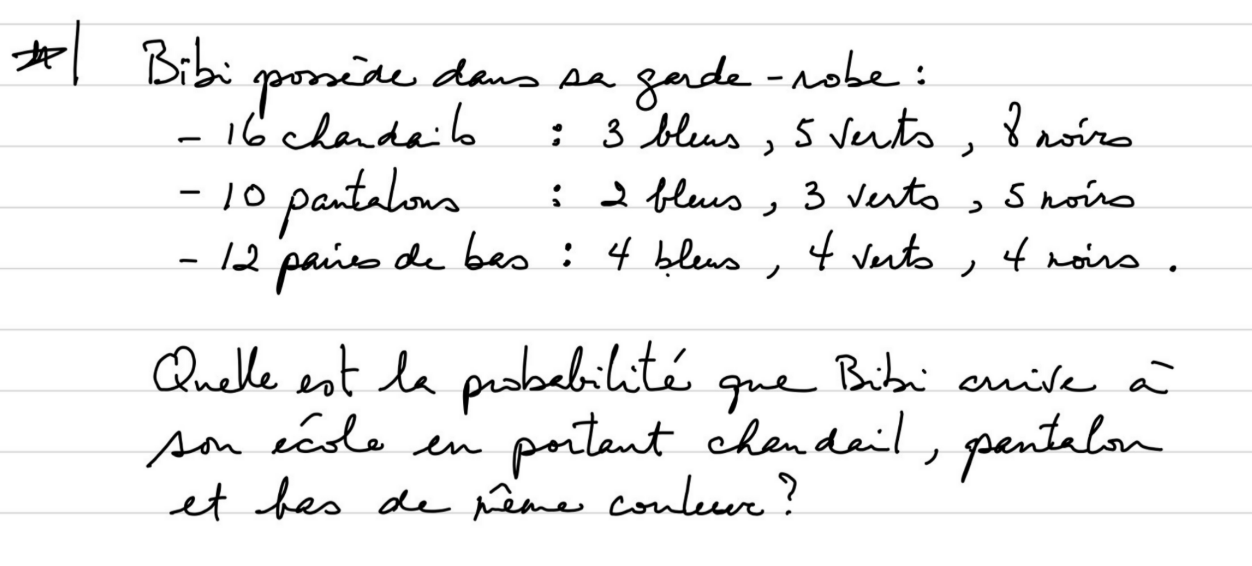 Bibi possède dans sa garde-robe :
- 16 chandails : 3 bleus, 5 verts, 8 noirs
- 10 pantalons : 2 bleus, 3 verts, 5 noirs
- 12 paires de bas : 4 bleus, 4 verts, 4 noirs.
Quelle est la probabilité que Bibi arrive à
son école en portant chandail, pantalon
et bas de même couleur ?